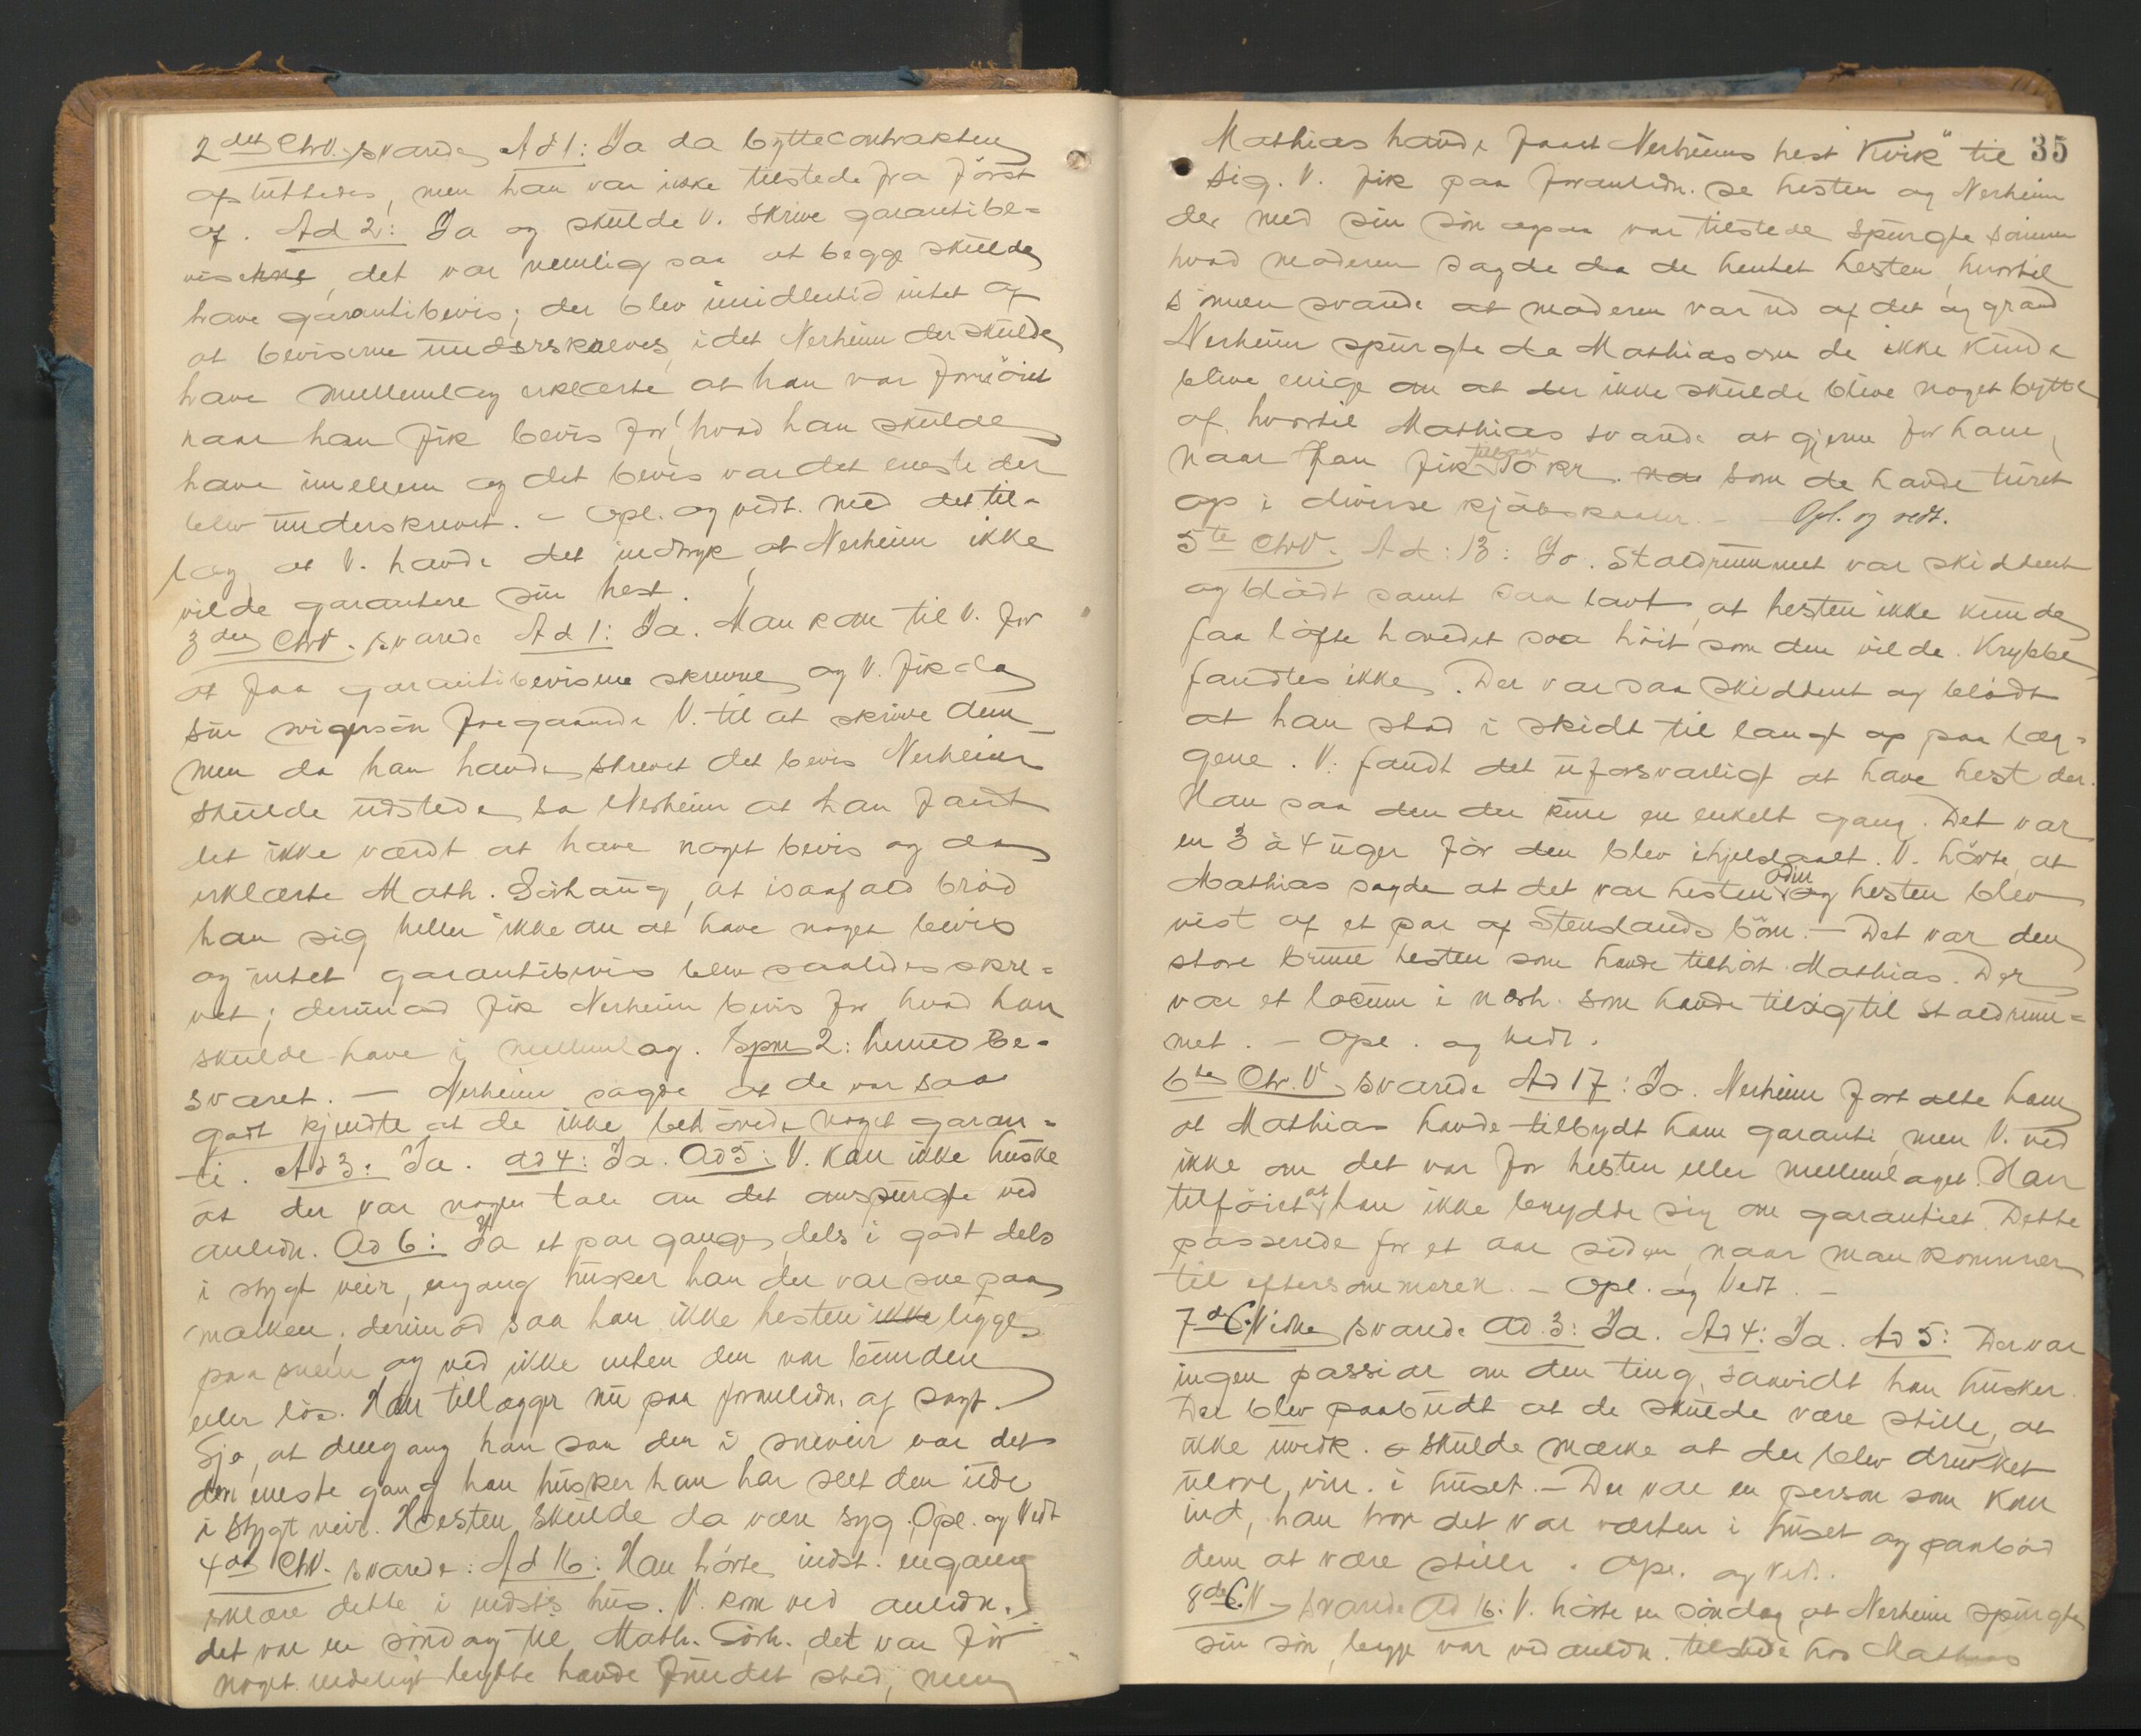 2det Ctr.V. svarede Ad 1: Ja da byttecontrakten
afsluttedes, men han var ikke tilstede fra först
af. Ad 2: Ja og skulde V. skrive garantibe-
viserne, det var nemlig saa at begge skulde
have garantibevis; der blev imidlertid intet af
at beviserne underskreves, idet Nerheim der skulde
have mellemlag erklærte at han var fornöiet
naar han fik bevis for hvad han skulde
have imellem og det bevis var det eneste der
blev underskrevet. - Opl. og vedt. med det til-
læg at V. havde det indtryk at Nerheim ikke
vilde garantere sin hest.
3die Ctr.V. svarede Ad 1: Ja. Man kom til V. for
at faa garantibeviserne skrevne og V. fik da
sin svigersön foregaaende V. til at skrive dem
men da han havde skrevet det bevis Nerheim
skulde udstede sa Nerheim at han fandt
det ikke værdt at have noget bevis og da
erklærte Math. Sörhaug, at isaafald bröd
han sig heller ikke om at have noget bevis
og intet garantibevis blev saaledes skre-
vet; derimod fik Nerheim bevis for hvad han
skulde have i mellemlag. Spm 2: hermed be-
svaret. - Nerheim sagde at de var saa
godt kjendte at de ikke behövede noget garan-
ti. Ad 3: Ja. ad 4: Ja. Ad 5: V. kan ikke huske
at der var nogen tale om det omspurgte ved
anledn. Ad 6: Ja et par ganger, dels i godt dels
i stygt veir, engang husker han der var sne paa
marken, derimod saa han ikke hesten ikke ligge
paa sneen og ved ikke enten den var bunden
eller lös. Han tillægger nu paa foranledn. af sagf.
Sjo, at dengang han saa den i sneveir var det
den eneste gang han husker han har seet den ude
i stygt veir. Hesten skulde da være syg. Opl. og Vedt
4de Ctr.V. svarede: Ad 16: Han hörte indst. engang
erklære dette i indst's hus. V. kom ved anledn.
det var en söndag til Math. Sörh. det var för
noget endeligt bytte havde fundet sted, men
35
Mathias havde faaet Nerheims hest "Kvik" til
sig. V. fik paa foranledn. se hesten og Nerheim
der med sin sön ogsaa var tilstede spurgte sönnen
hvad moderen sagde da de hentet hesten, hvortil
sönnen svarede at moderen var ud af det og græd
Nerheim spurgte da Mathias om de ikke kunde
blive enige om at der ikke skulde blive noget bytte
af, hvortil Mathias svarede at gjerne for ham,
naar han fik tilbage 10 kr. na som de havde turet
op i diverse kjöbskaaler. - Opl. og vedt.
5te Ctr.V. Ad: 13: Ja. Staldrummet var skiddent
og blödt samt saa lavt, at hesten ikke kunde
faa löfte hovedet saa höit som den vilde. Krybbe
fandtes ikke. Der var saa skiddent og blödt
at han stod i skidt til langt op paa læg-
gene. V. fandt det uforsvarligt at have hest der.
Han saa den der kun en enkelt gang. Det var
en 3 à 4 uger för den blev ihjelslaaet. V. hörte at
Mathias sagde at det var hesten og hesten blev
vist af et par af Stenslands börn. - Det var den
store brune hesten som havde tilhört Mathias. Der
var et locum i nærh. som havde tilsig til staldrum-
met. - Opl. og vedt.
6te Ctr.V. svarede Ad 17: Ja. Nerheim fortalte ham
at Mathias havde tilbydt ham garanti, men V. ved
ikke om det var for hesten eller mellemlaget. Han
tilföiet at han ikke brydde sig om garantiet. Dette
passerede for et aar siden, naar man kommer
til eftersommeren. - Opl. og Vedt. -
7de C. Vidne svarede ad 3: Ja. Ad 4: Ja. Ad 5: Der var
ingen passiar om den ting, saavidt han husker.
Der blev paabudt at de skulde være stille, at
ikke uvedk. skulde mærke at der blev drukket
ulovl. vin. i huset. - Der var en person som kom
ind, han tror det var verten i huset og paaböd
dem at være stille. Opl. og Ved.
8de C.V. svarede Ad 16: V. hörte en söndag at Nerheim spurgte
sin sön, begge var ved anledn. tilstede hos Mathias